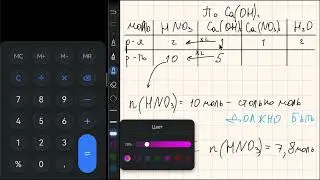 По Ca(OH)₂
моль HNO₃ Ca(OH)₂ Ca(NO₃)₂ H₂O
р-я 2 ×2 1 1 2
р-ра 10 ×2 5
n(HNO₃) = 10 моль - столько моль
ДОЛЖНО БЫТЬ
n(HNO₃) = 7,8 моль
Цвет
MC MR M+ M-
AC
%
÷
7 8 9 ×
4 5 6 -
1 2 3 +
0 . =